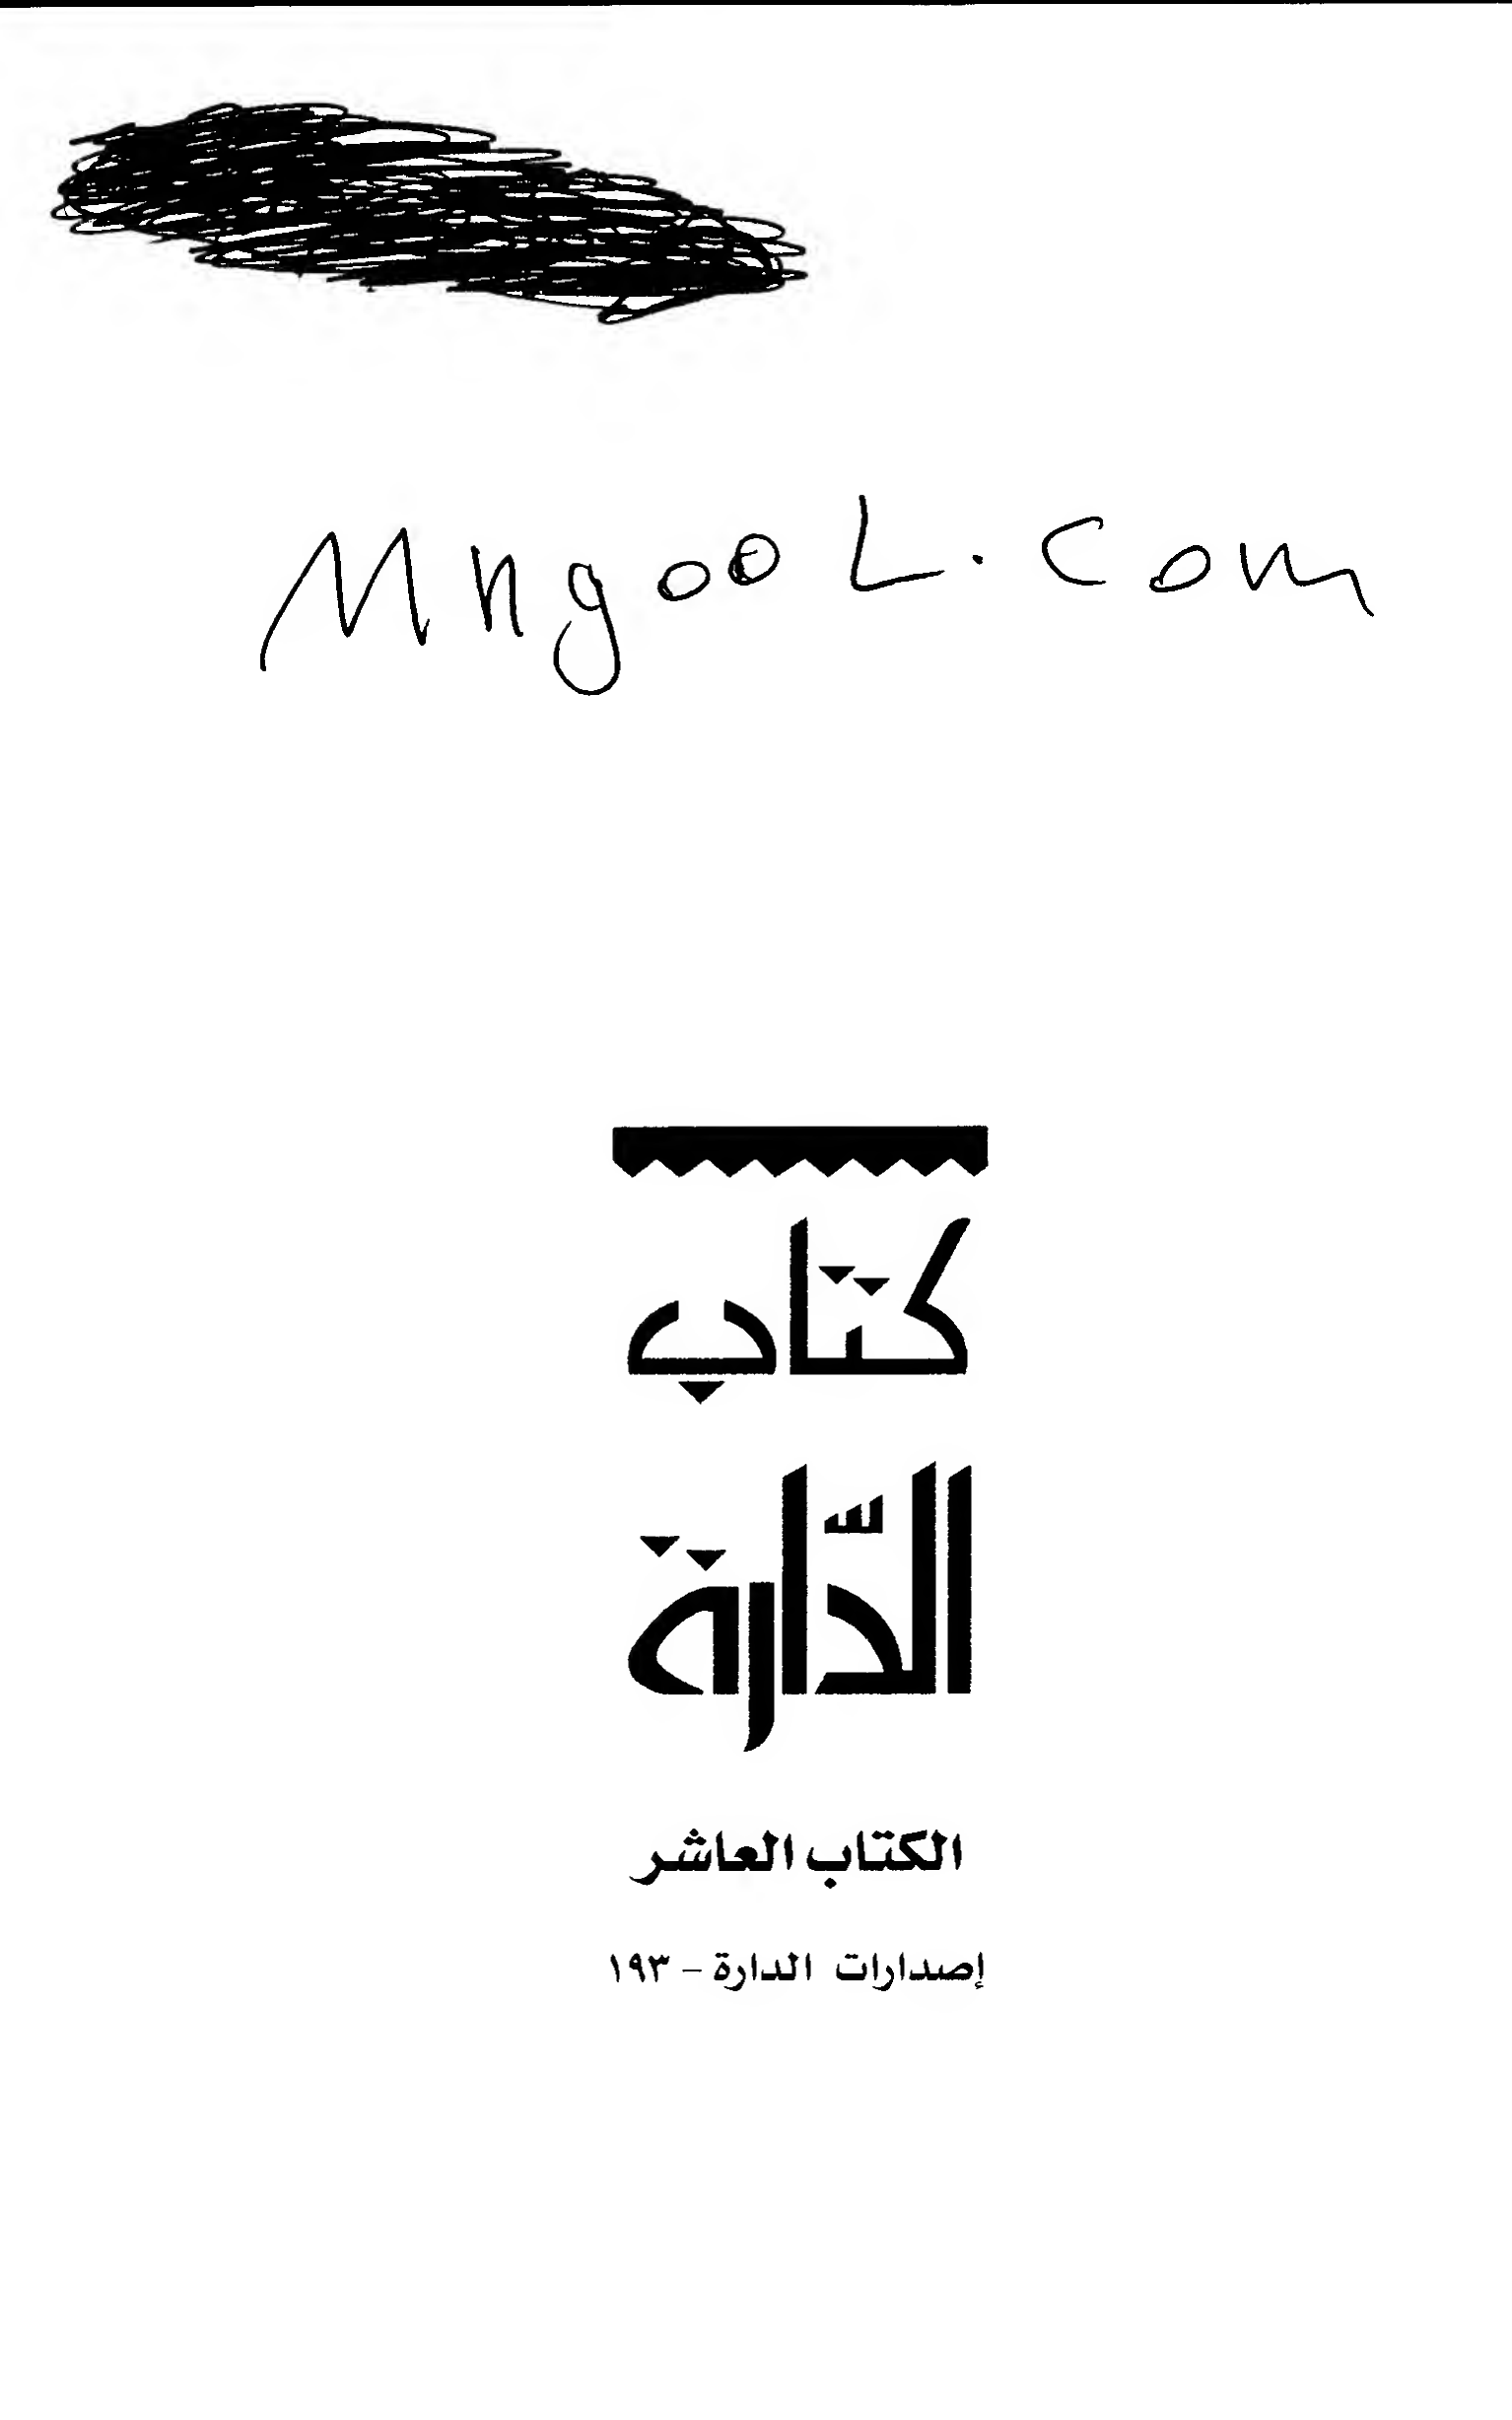 MngooL.com
كتاب
الدّارة
الكتاب العاشر
إصدارات الدارة - ١٩٣